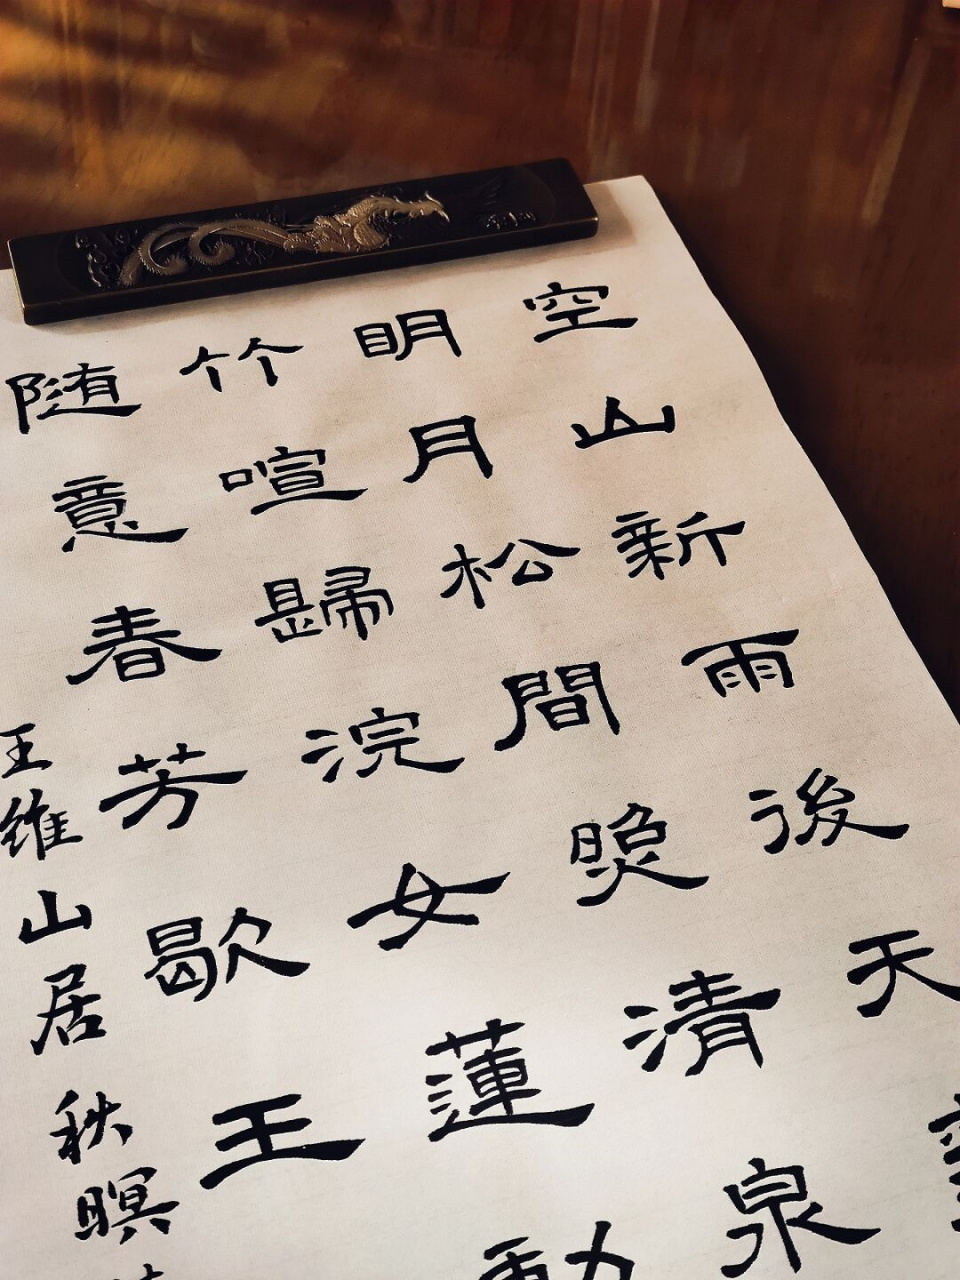 空山新雨後天
明月松間照清泉
竹喧歸浣女蓮動
随意春芳歇王
王维山居秋暝